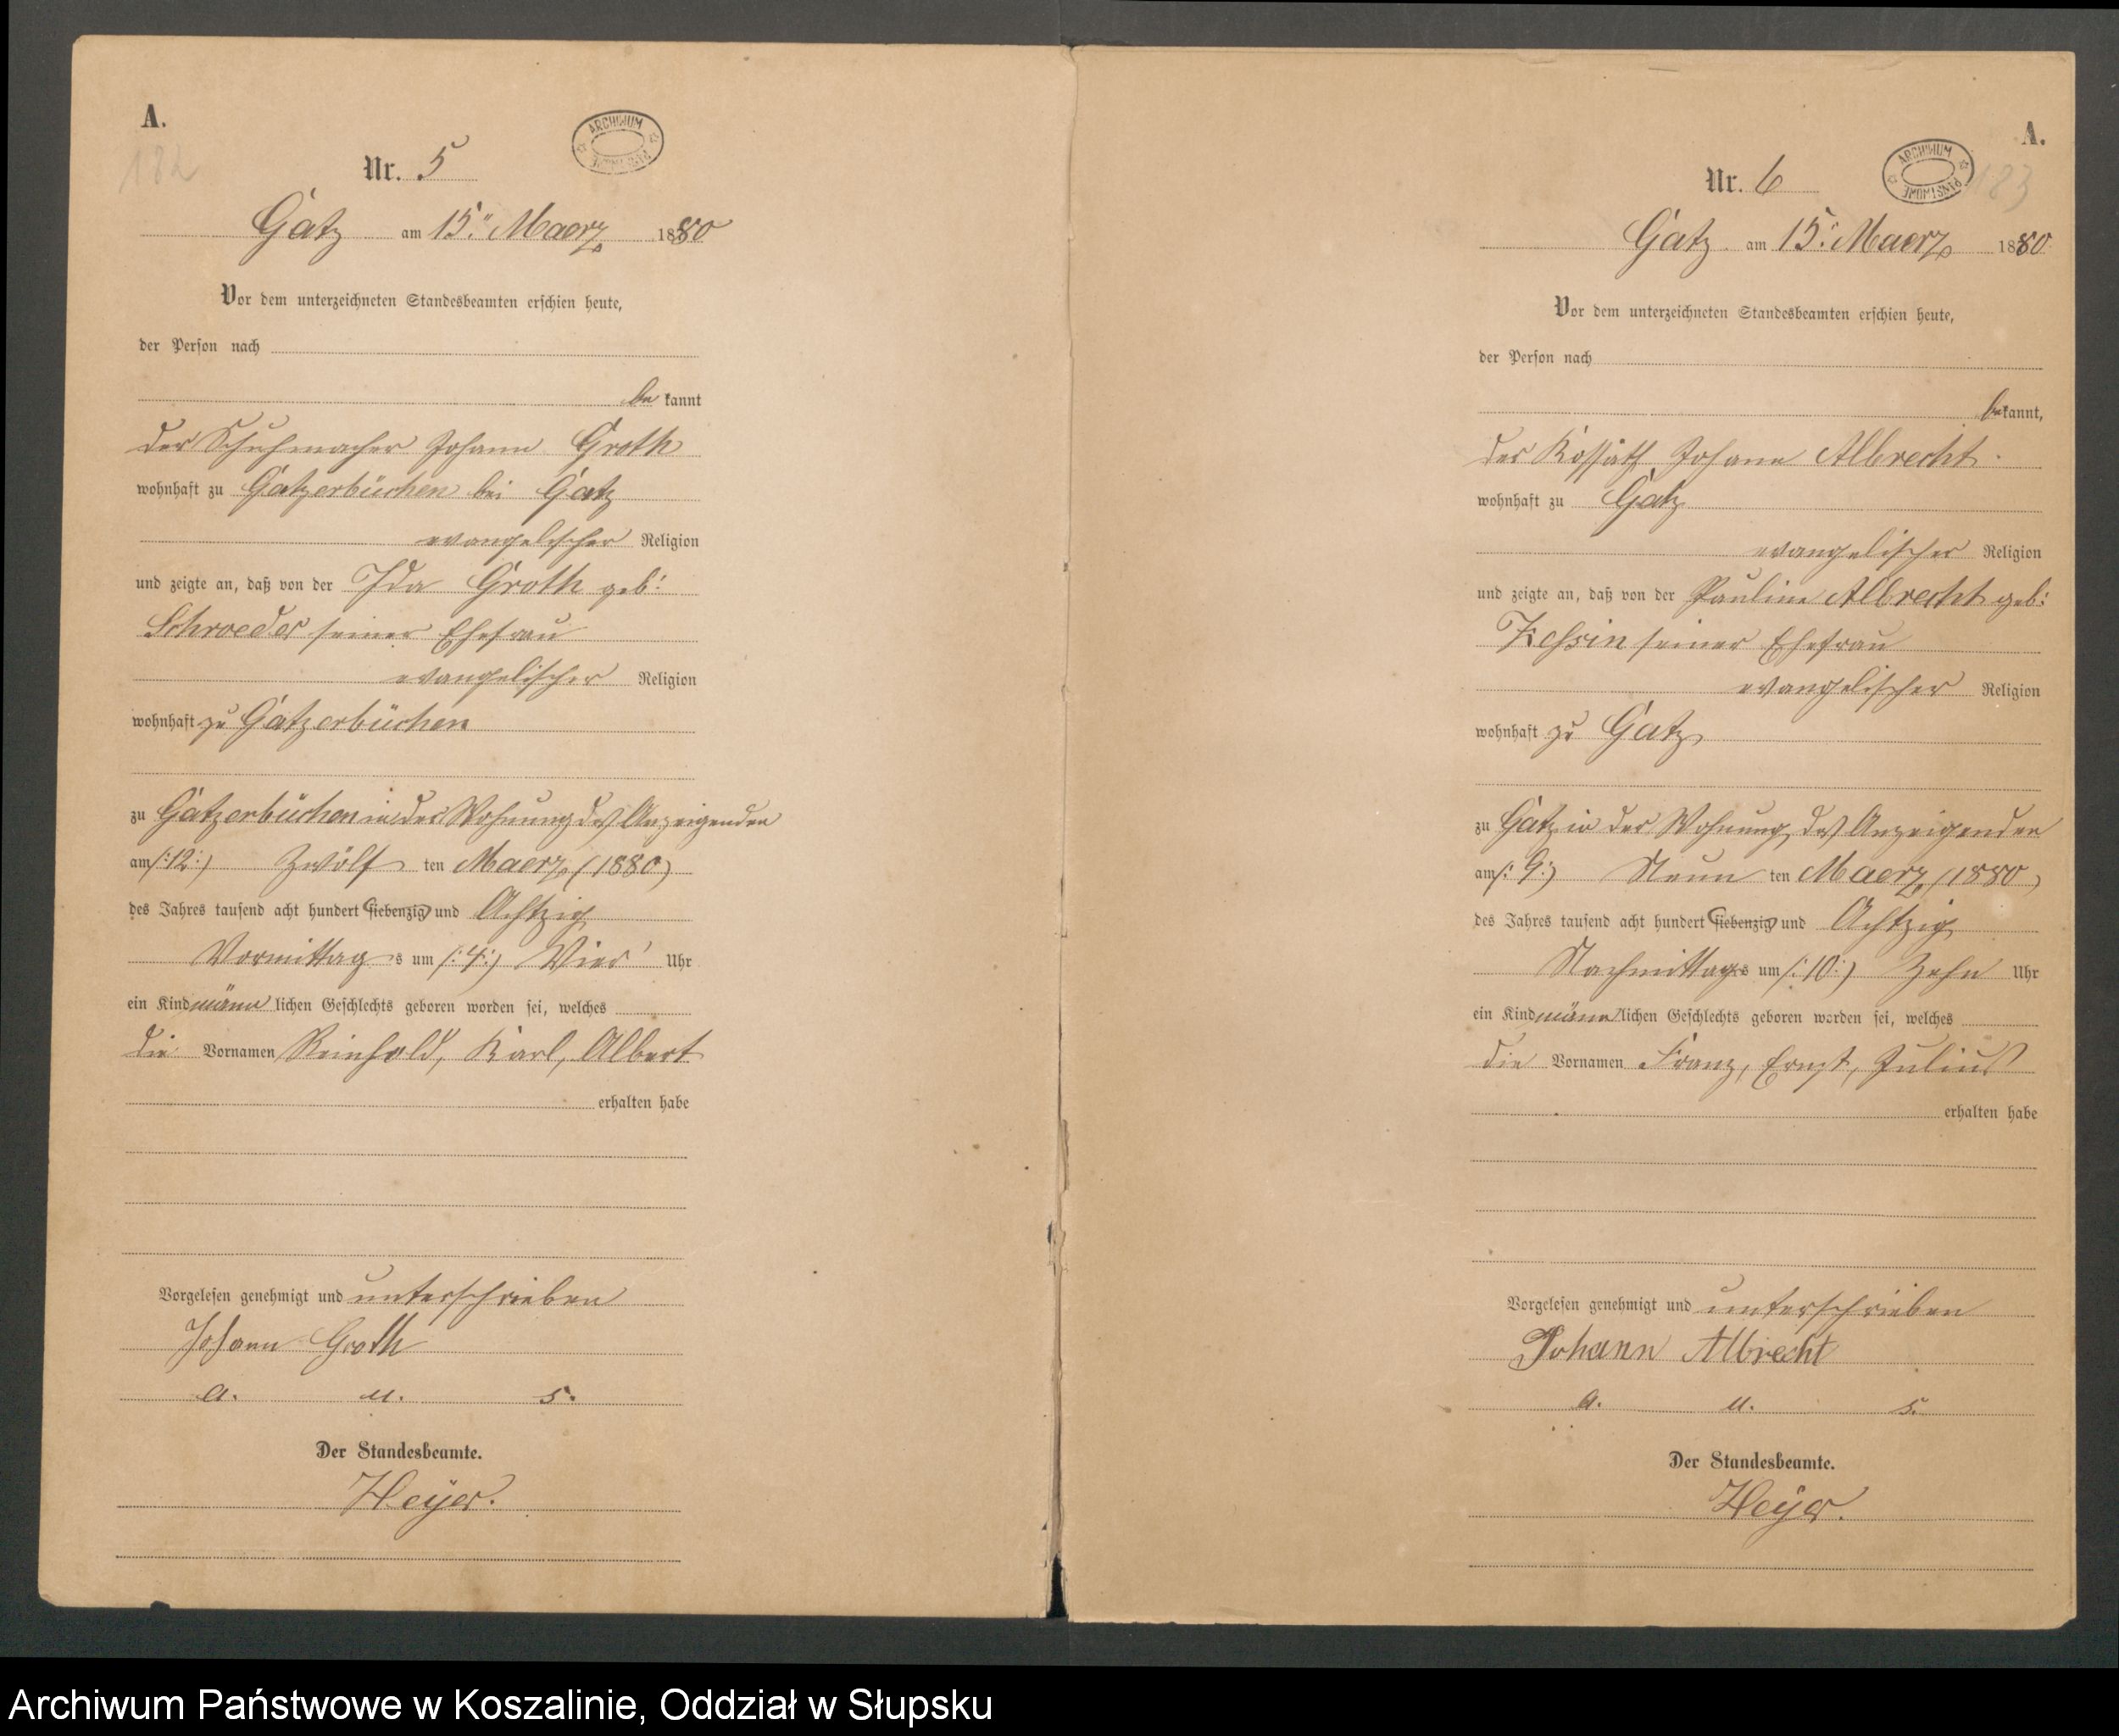 A.
182
Nr. 5
ARCHIWUM PAŃSTWOWE
Gatz am 15." Maerz 1880
Vor dem unterzeichneten Standesbeamten erschien heute,
der Person nach
be kannt
der Schuhmacher Johann Groth
wohnhaft zu Gatzerbüchen bei Gatz
evangelischer Religion
und zeigte an, daß von der Ida Groth geb:
Schroeder seiner Ehefrau
evangelischer Religion
wohnhaft zu Gatzerbüchen
zu Gatzerbüchen in der Wohnung des Anzeigenden
am /:12:/ Zwölf ten Maerz (1880)
des Jahres tausend acht hundert siebenzig und Achtzig
Vormittag s um /:4:/ Vier Uhr
ein Kind männ lichen Geschlechts geboren worden sei, welches
die Vornamen Reinhold, Karl, Albert
erhalten habe
Vorgelesen genehmigt und unterschrieben
Johann Groth
a. u. s.
Der Standesbeamte.
Heyer.
A.
183
Nr. 6
ARCHIWUM PAŃSTWOWE
Gatz am 15." Maerz 1880
Vor dem unterzeichneten Standesbeamten erschien heute,
der Person nach
bekannt,
der Kossäth Johann Albrecht
wohnhaft zu Gatz
evangelischer Religion
und zeigte an, daß von der Pauline Albrecht geb:
seiner Ehefrau
evangelischer Religion
wohnhaft zu Gatz
zu Gatz in der Wohnung des Anzeigenden
am /:9:/ Neun ten Maerz (1880)
des Jahres tausend acht hundert siebenzig und Achtzig
Nachmittags um /:10:/ Zehn Uhr
ein Kind männlichen Geschlechts geboren worden sei, welches
die Vornamen Franz, Ernst, Julius
erhalten habe
Vorgelesen genehmigt und unterschrieben
Johann Albrecht
a. u. s.
Der Standesbeamte.
Heyer.
Archiwum Państwowe w Koszalinie, Oddział w Słupsku